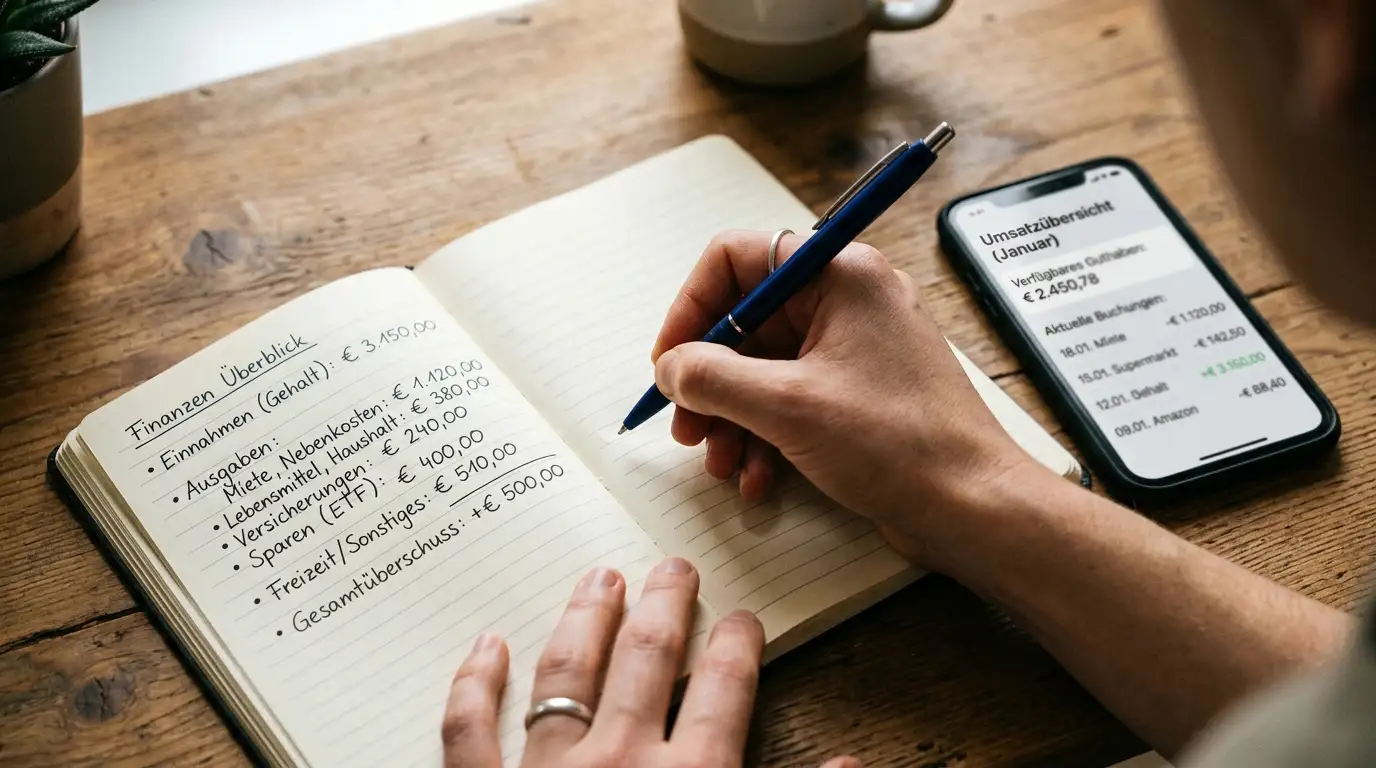 Finanzen Überblick
• Einnahmen (Gehalt): € 3.150,00
• Ausgaben:
Miete, Nebenkosten: € 1.120,00
• Lebensmittel, Haushalt: € 380,00
• Versicherungen: € 240,00
• Sparen (ETF): € 400,00
• Freizeit/Sonstiges: € 510,00
• Gesamtüberschuss: +€ 500,00
Umsatzübersicht
(Januar)
Verfügbares Guthaben:
€ 2.450,78
Aktuelle Buchungen:
18.01. Miete -€ 1.120,00
15.01. Supermarkt -€ 142,50
12.01. Gehalt +€ 3.150,00
09.01. Amazon -€ 68,40